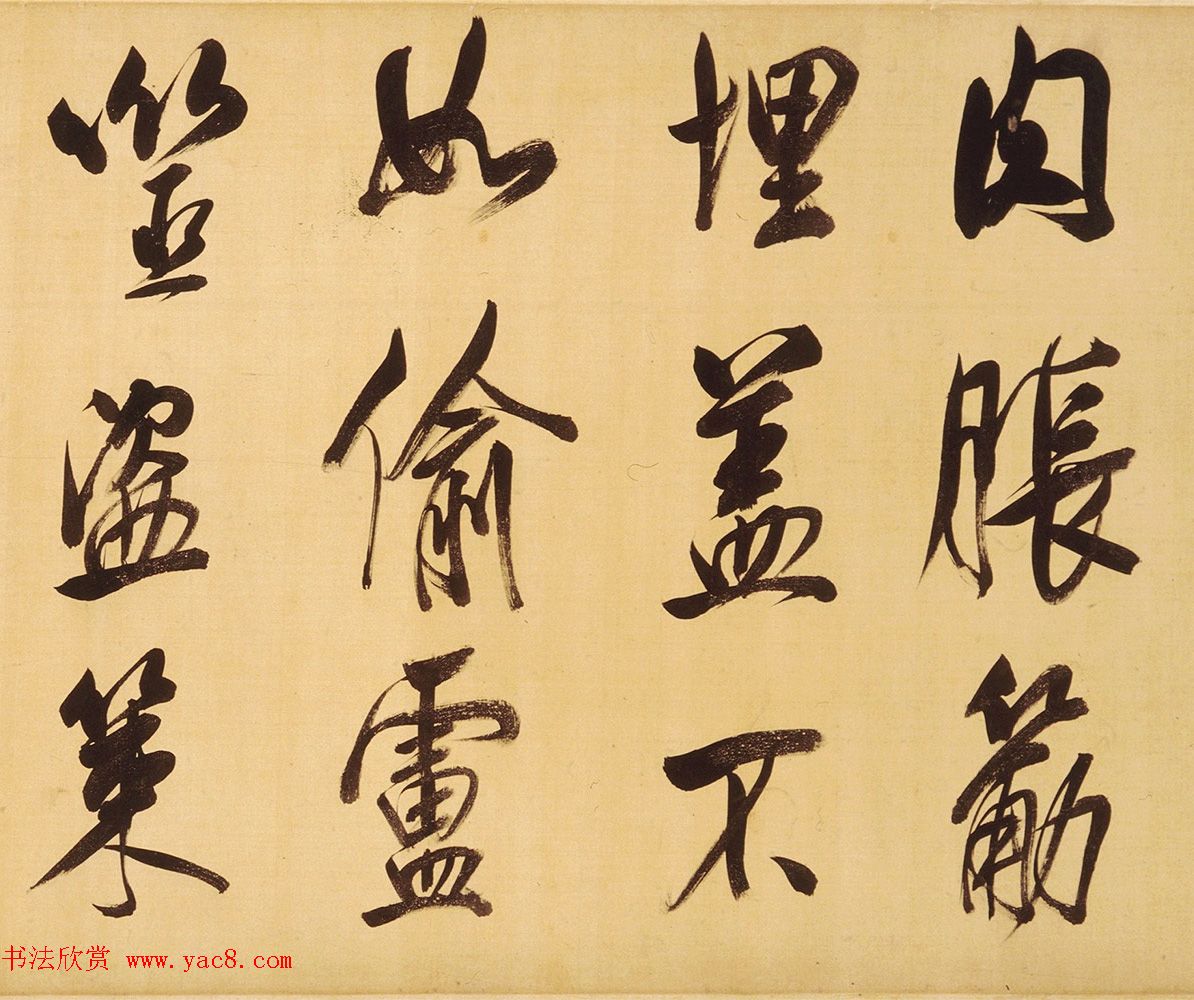 肉脹筋
埋盖不
如偷盧
筮盗策
书法欣赏 www.yac8.com